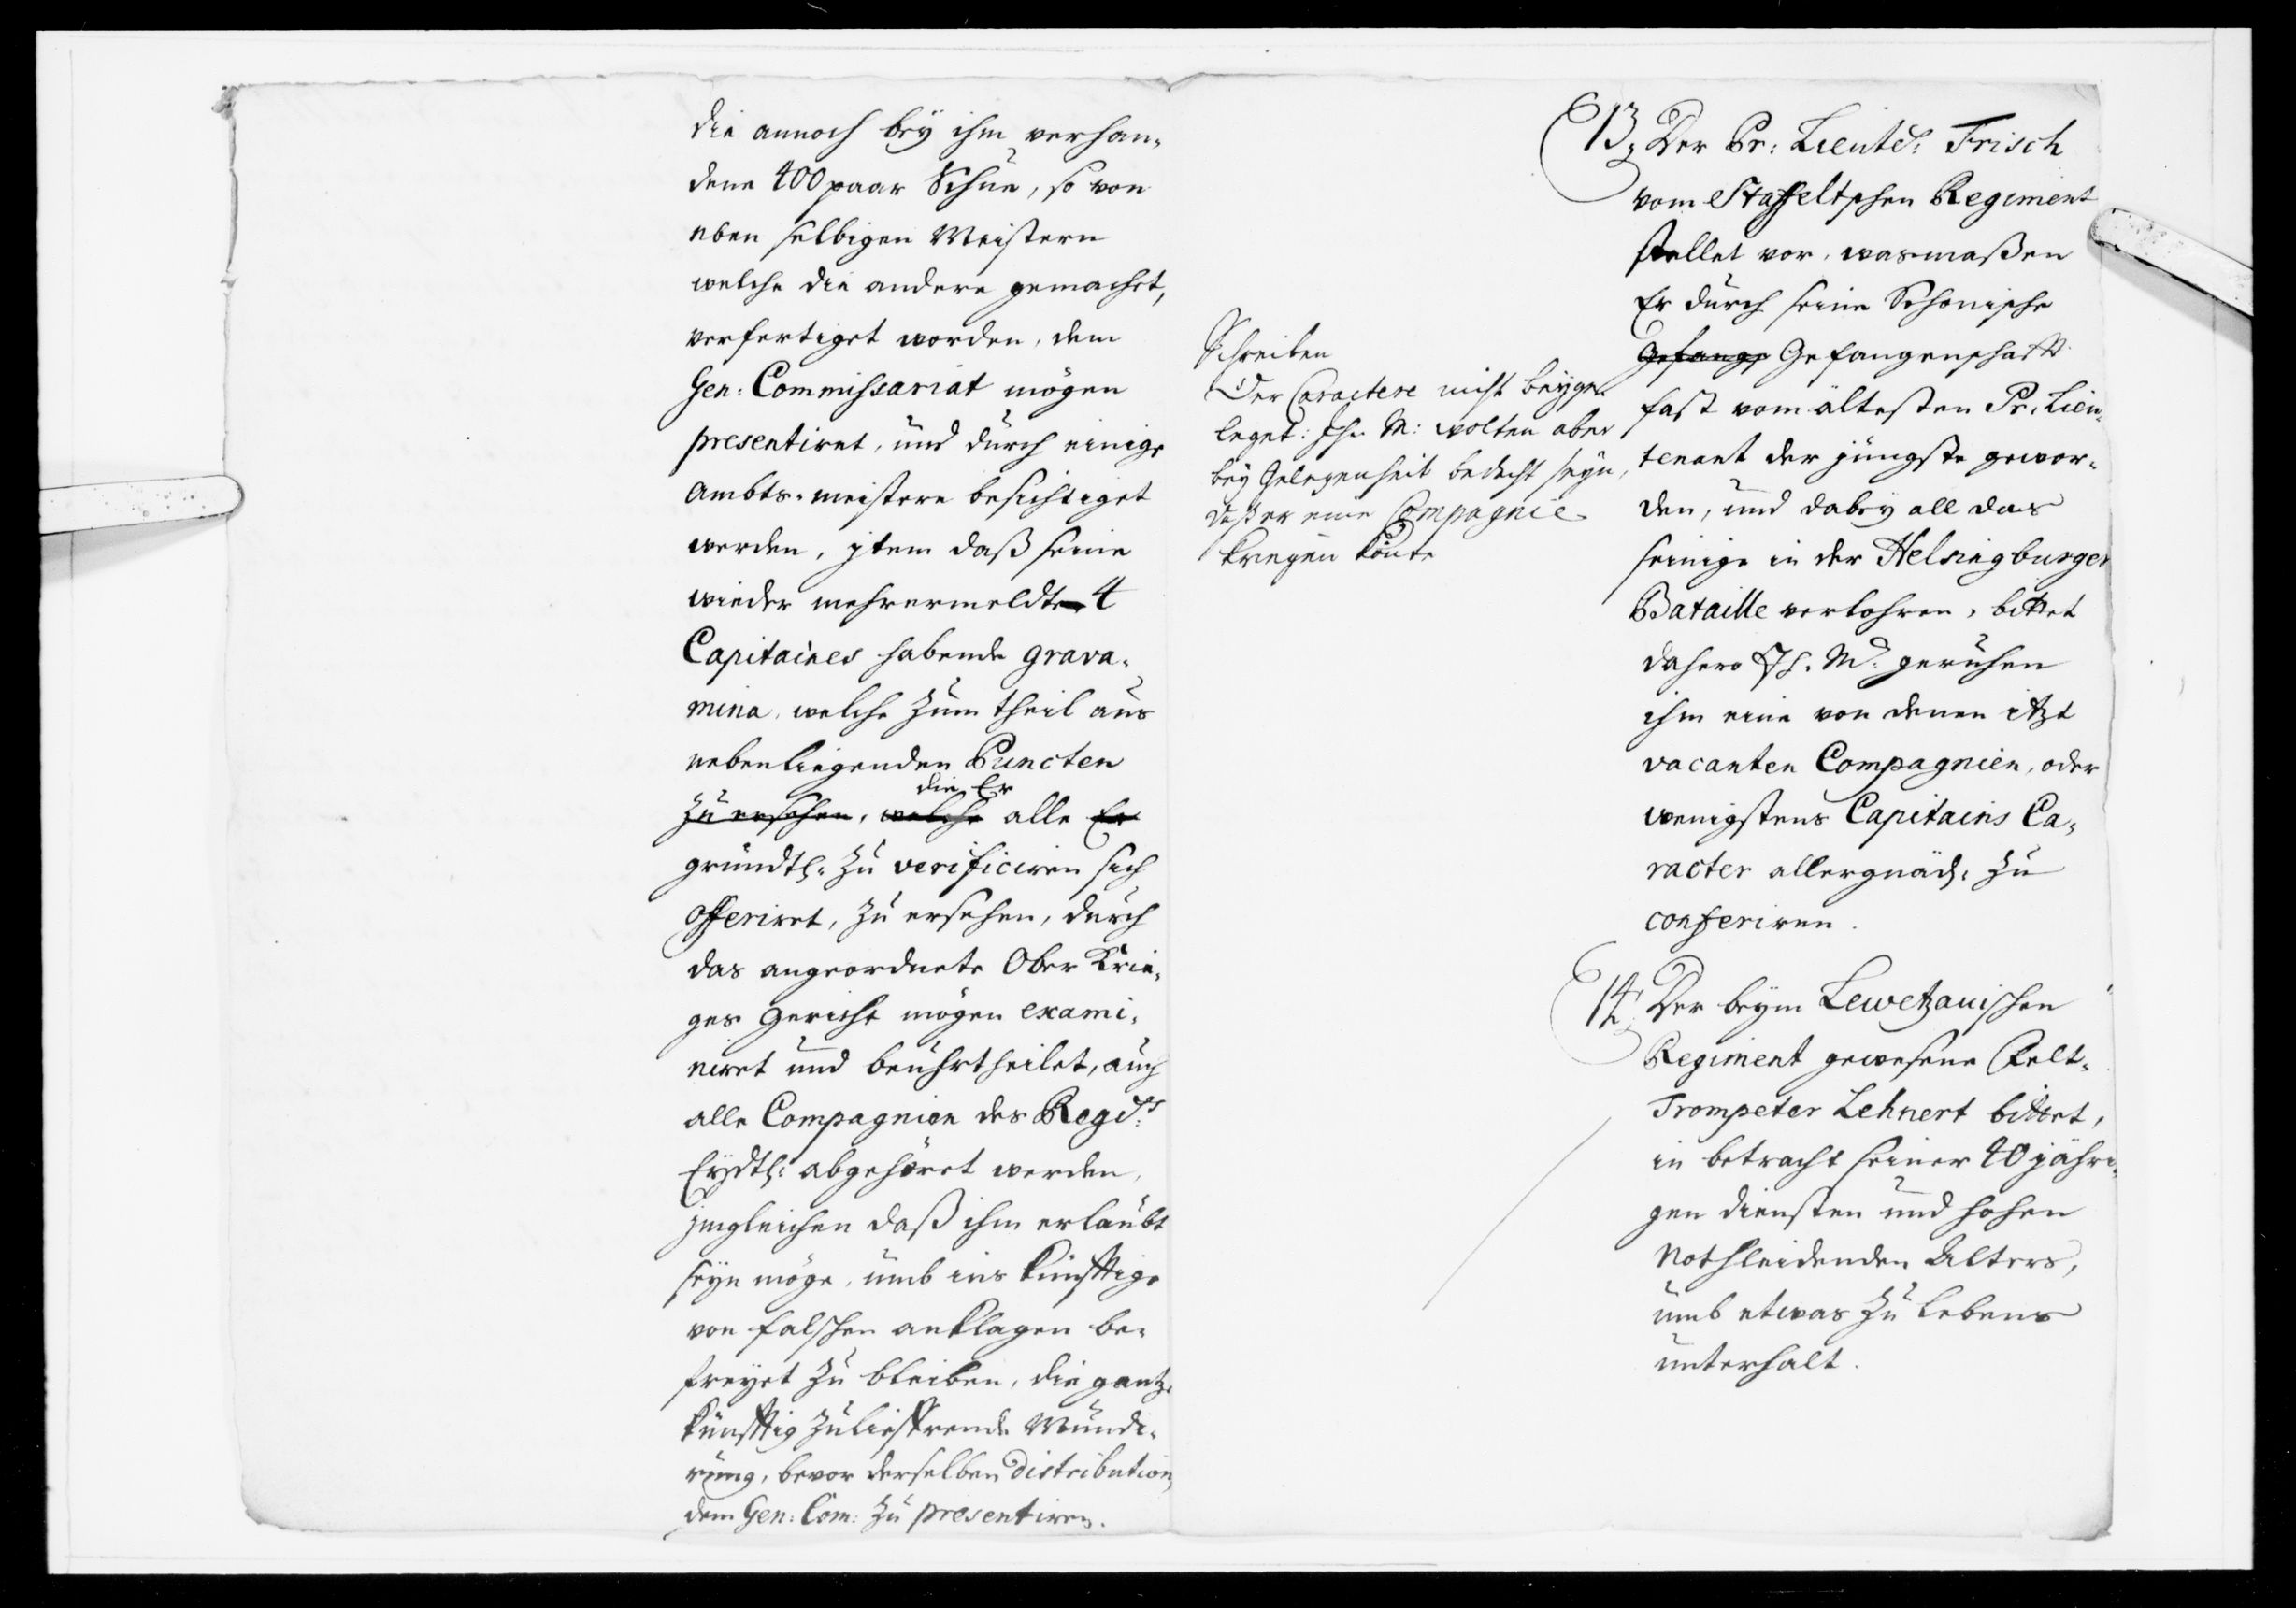 die annoch bey ihm verhan-
dene 400 paar Schue, so von
eben selbigen Meistern
welche die andere gemachet,
verfertiget worden, dem
Gen: Commissariat mögen
presentiret, und durch einige
Ambts-meistere besichtiget
werden, jtem daß seine
wieder mehrermeldte 4
Capitaines habende grava-
mina, welche zum theil aus
nebenliegenden Puncten
die Er
zu ersehen, welche alle Er
gründtl: zu verificiren sich
offeriret, zu ersehen, durch
das angeordnete Ober Krie-
ges Gericht mögen exami-
niret und beuhrtheilet, auch
alle Compagnien des Regts:
Eydtl: abgehöret werden,
jmgleichen daß ihm erlaubt
seyn möge, umb ins künfftige
von falschen anklagen be-
freyet zu bleiben, die gantze
künfftig zu lieffrende Mundi-
rung, bevor derselben distribution,
dem Gen: Com: zu presentiren.
Schreiben
Der Caractere nicht beyge-
leget: Ihr. M: wolten aber
bey Gelegenheit bedacht seyn,
daß er eine Compagnie
kregen könte
13, Der Pr: Lieutd: Frisch
vom Staffeltschen Regiment
stellet vor, wasmaßen
Er durch seine Schonische
Gefange Gefangenschafft
fast vom ältesten Pr: Lieu-
tenant der jüngste gewor-
den, und dabey all das
seinige in der Helsingburger
Bataille verlohren, bittet
dahero Ih. M: geruhen
ihm eine von denen itzt
vacanten Compagnien, oder
wenigstens Capitains Ca-
racter allergnäd: zu
conferiren.
14, Der beym Lewetzauischen
Regiment gewesene Felt-
Trompeter Lehnert bittet,
in betracht seiner 40 jähri-
gen diensten und hohen
Nothleidenden Alters,
umb etwas zu lebens
unterhalt.